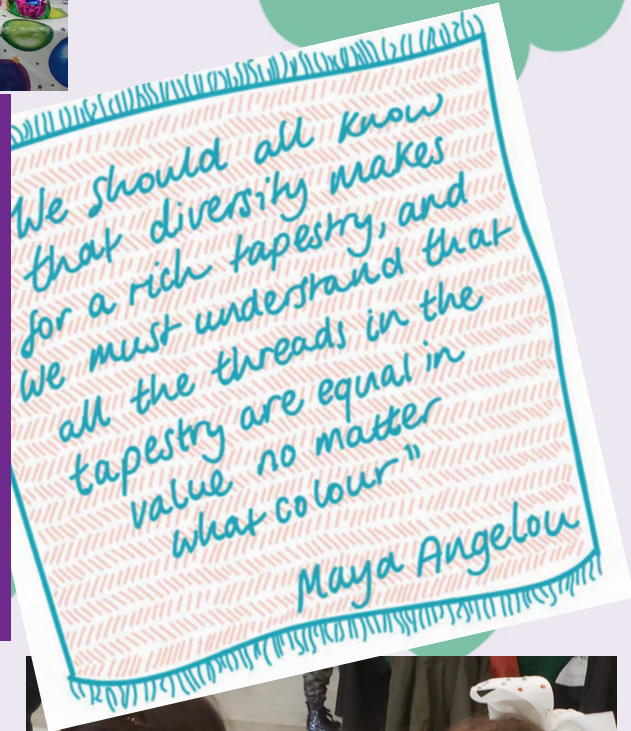 We should all know
that diversity makes
for a rich tapestry, and
we must understand that
all the threads in the
tapestry are equal in
value no matter
what colour"
Maya Angelou